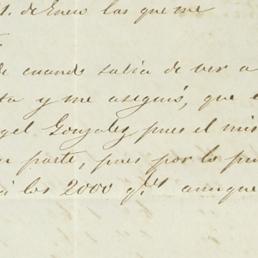 de Enero las que me
cuando salia de ver a
y me aseguró, que
Gonzalez pues el mis
parte, pues por lo
los 2000 q.s aunque